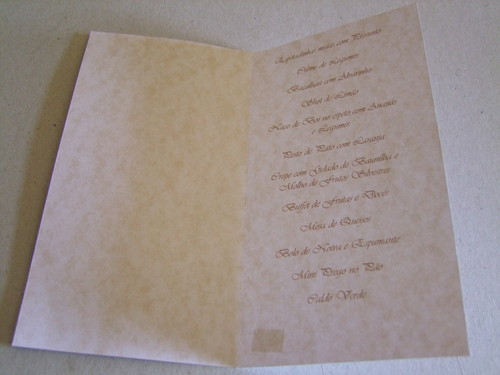 Espetadinhas mistas com Presunto
Creme de Legumes
Bacalhau com Alvarinho
Shot de Limão
Naco de Boi no espeto com Ananás
e Legumes
Peito de Pato com Laranja
Crepe com Gelado de Baunilha e
Molho de Frutos Silvestres
Buffet de Frutas e Doces
Mesa de Queijos
Bolo de Noiva e Espumante
Mini Prego no Pão
Caldo Verde